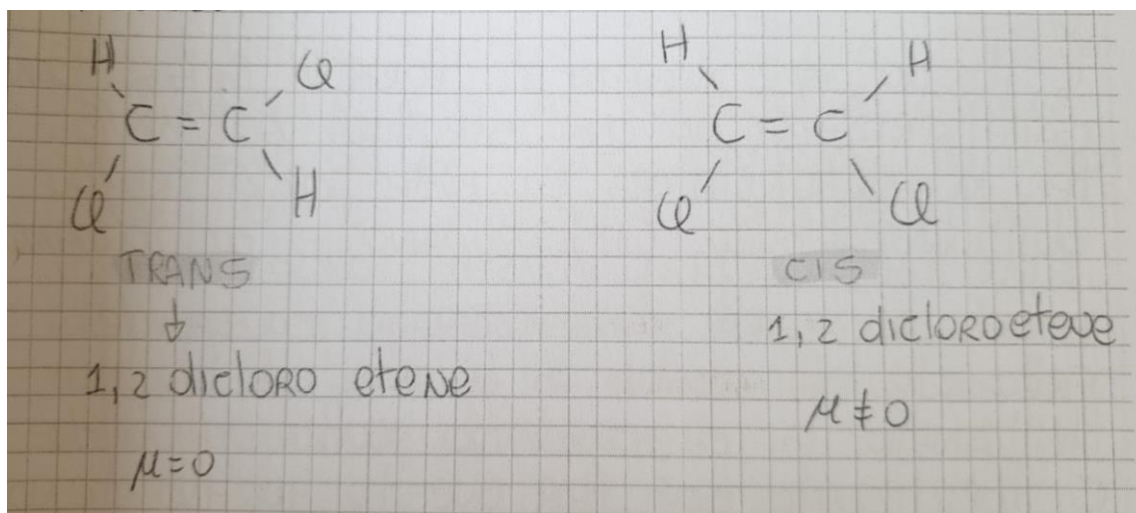 H Cl
C = C
Cl H
TRANS
↓
1,2 dicloro etene
μ=0
H H
C = C
Cl Cl
CIS
1,2 dicloroetene
μ≠0